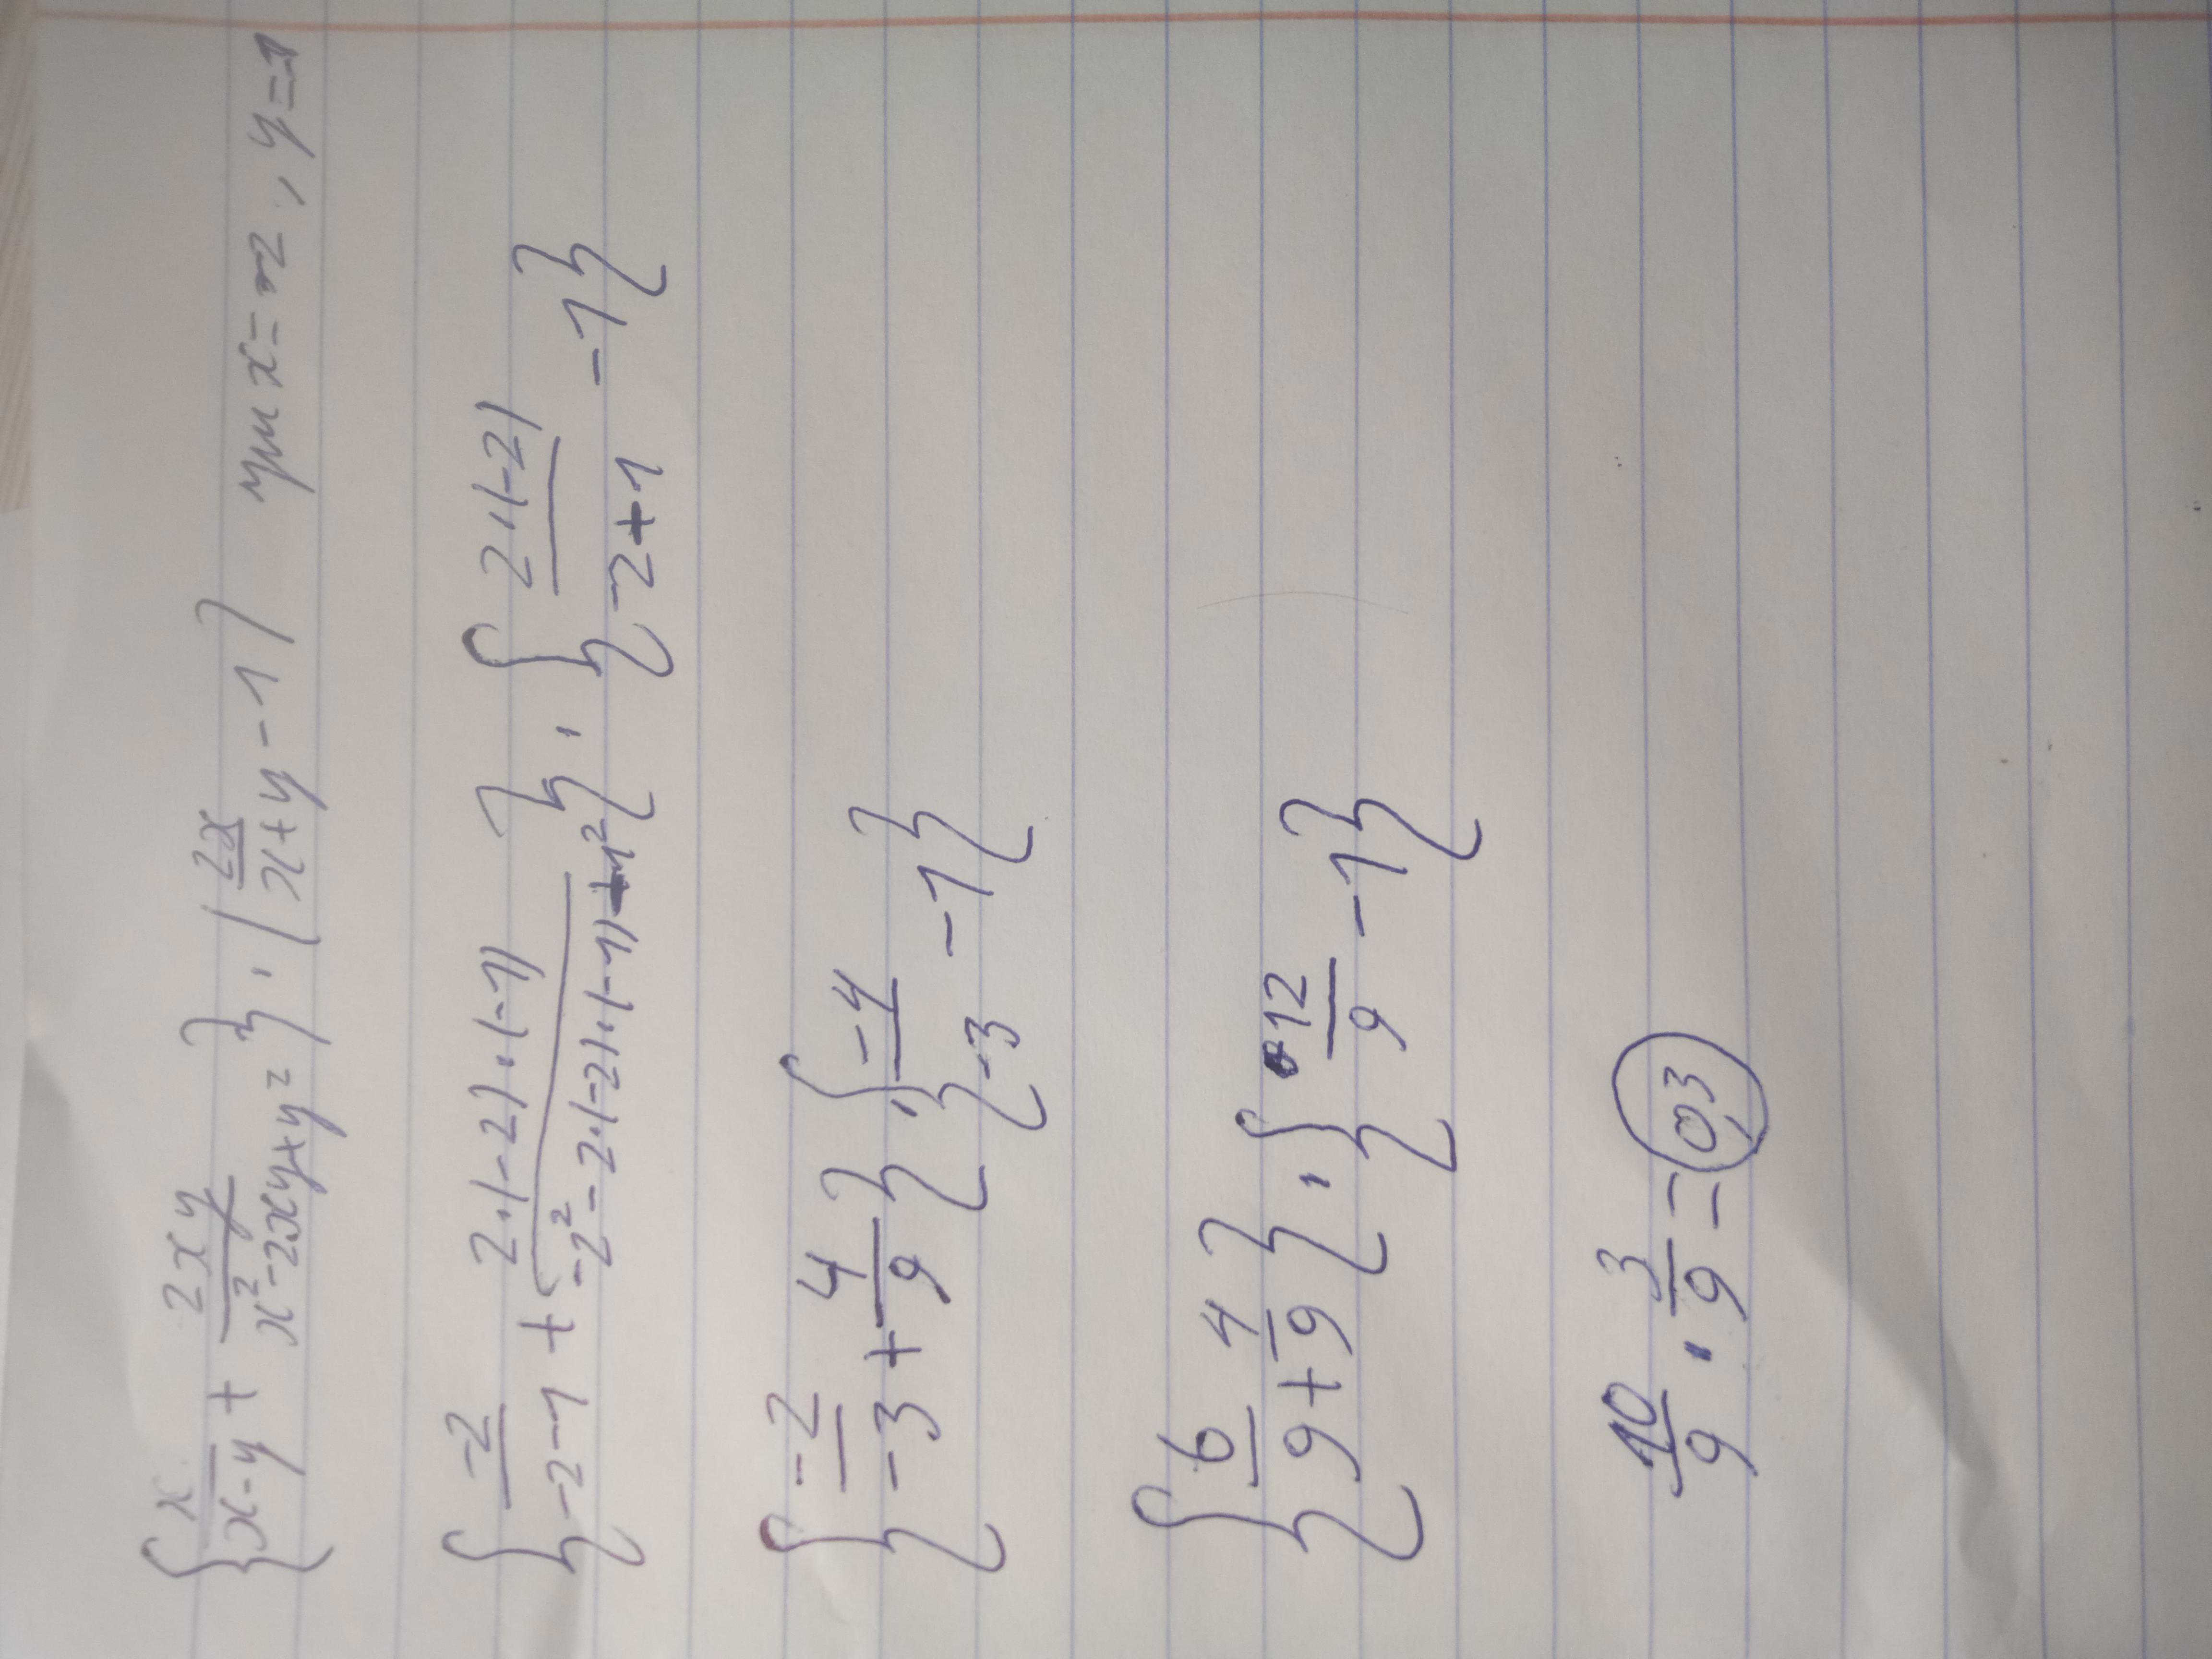 {x/(x-y) + 2xy/(x²-2xy+y²)} · (2x/(x+y) - 1) при x=-2, y=1
{-2/(-2-1) + 2·(-2)·(-1)/(-2²-2·(-2)·(-1)+1²)} · {2·(-2)/(-2+1) - 1}
{-2/-3 + 4/9} · {-4/-3 - 1}
{6/9 + 4/9} · {12/9 - 1}
10/9 · 3/9 = 0,3